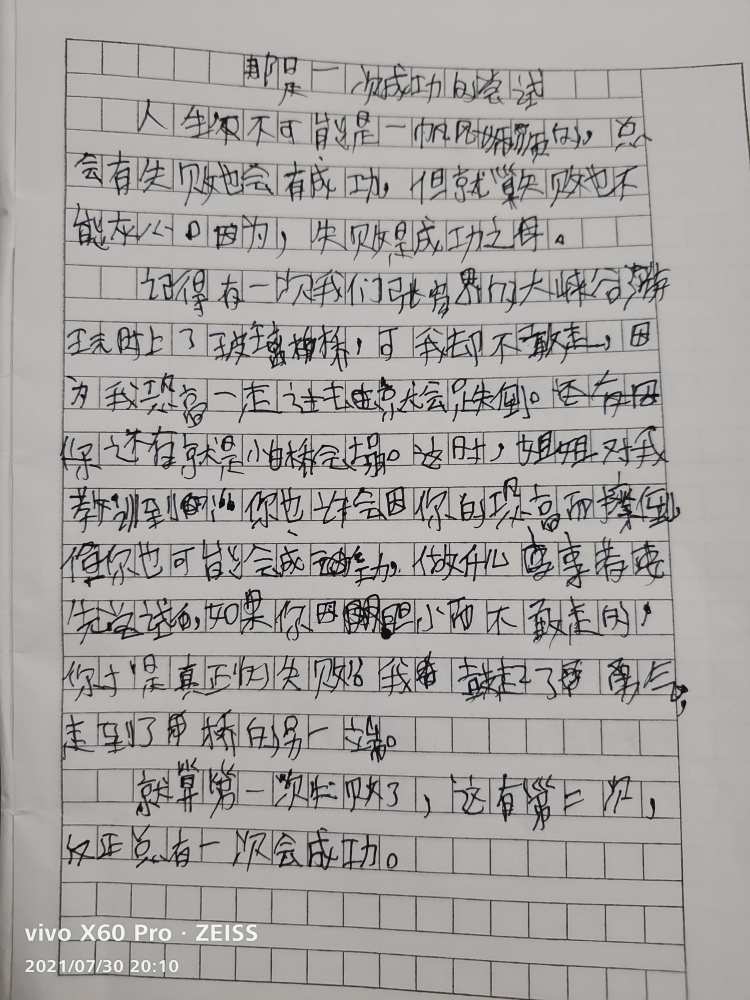 那是一次成功的尝试
人生不可能是一帆风顺的，总
会有失败也会有成功，但就算失败也不
能灰心。因为，失败是成功之母。
记得有一次我们张家界的大峡谷
时上了玻璃桥，可我却不敢走，因
为我恐高一走上去就会跌倒。还有
还有就是怕桥会塌。这时，姐姐对我
教训到你也许会因你的恐高而摔倒，
但你也可能会成功，做什么事
先尝试，如果你因胆小而不敢走的，
你才是真正的失败。我鼓起了勇气，
走到了桥的另一端。
就算第一次失败了，这有第二次，
反正总有一次会成功。
vivo X60 Pro · ZEISS
2021/07/30 20:10